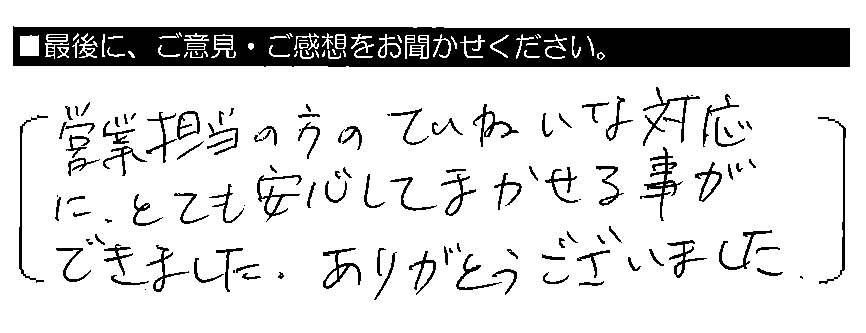 ■最後に、ご意見・ご感想をお聞かせください。
営業担当の方のていねいな対応
に、とても安心してまかせる事が
できました。ありがとうございました。